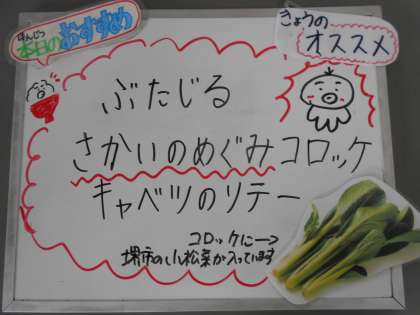 ほんじつ
本日のおすすめ
きょうの
オススメ
ぶたじる
さかいのめぐみコロッケ
キャベツのソテー
コロッケに→
堺市の小松菜が入っています